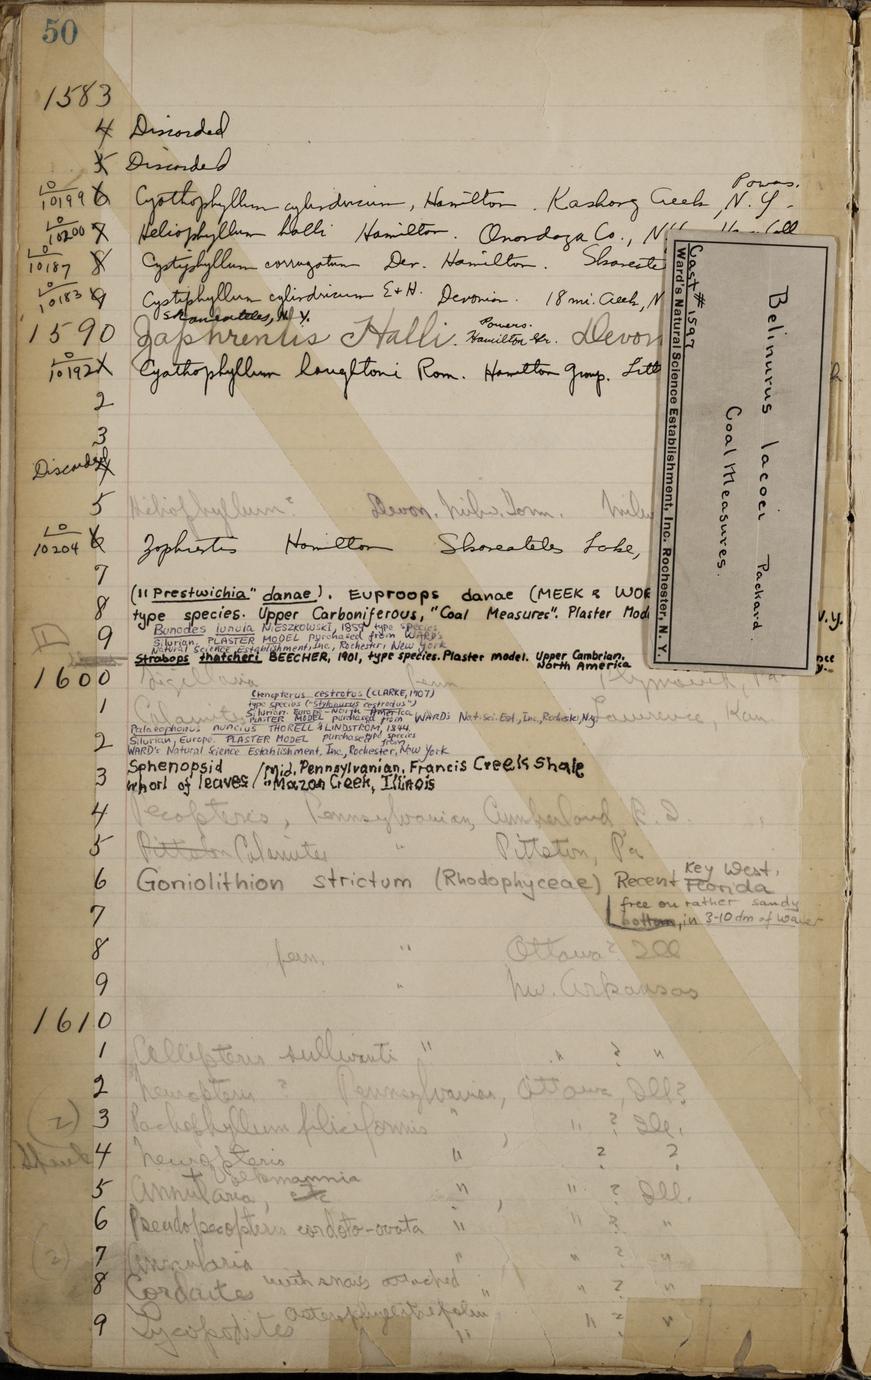 50
1583
4 Discorded
5 Discorded
LO 10199 6 Cyathophyllum cylindricum, Hamilton. Kashong Creek, N.Y. Powas.
LO 10200 7 Heliophyllum halli Hamilton. Onondaga Co.,
LO 10187 8 Cystiphyllum corrugatum Dev. Hamilton.
LO 10183 9 Cystiphyllum cylindricum E+H. Devonian. 18 mi. Creek, N
Skaneateles, N.Y.
1590 Zaphrentis Halli. Powers. Hamilton Gr. Devon
LO 10192 Cyathophyllum houghtoni Rom. Hamilton group.
2
3
Discorded 4
5 Heliophyllum? Devon.
LO 10204 6 Hamilton Lake,
7
("Prestwichia" danae). Euproops danae (MEEK &
8 type species. Upper Carboniferous, "Coal Measures". Plaster Mod
Bunodes lunula NIESZKOWSKI, 1859, type species
9 Silurian. PLASTER MODEL purchased from WARD's
Natural Science Establishment, Inc., Rochester, New York
Strabops thatcheri BEECHER, 1901, type species. Plaster model. Upper Cambrian.
North America
1600 Sigillaria Penn Plymouth, Pa
Ctenopterus cestrotus (CLARKE, 1907)
type species ("Stylonurus cestrotus")
Silurian. Europe - North America
1 Calamites Lawrence, Kan
PLASTER MODEL purchased from WARD's Nat. Sci. Est., Inc., Rochester, N.Y.
Palaeophonus nuncius THORELL & LINDSTROM, 1844.
2 Silurian, Europe. PLASTER MODEL purchased from
WARD's Natural Science Establishment, Inc., Rochester, New York
Sphenopsid / Mid. Pennsylvanian, Francis Creek Shale
3 whorl of leaves / "Mazon Creek, Illinois
4 Pecopteris, Pennsylvanian, Cumberland R.I.
5 Pittston Calamites " Pittston, Pa
6 Goniolithion strictum (Rhodophyceae) Recent Key West, Florida
7 free on rather sandy
bottom, in 3-10 dm of water
8 fern. " Ottawa? Ill
9 " Nw. Arkansas
1610
1 Callipteris sullivanti " " ? "
2 Neuropteris ? Pennsylvanian, Ottawa, Ill?
(2) 3 filiciformis " , " ? Ill.
4 Neuropteris " ? ?
5 Annularia, Volkmannia " , " ? Ill.
6 Pseudopecopteris cordato-ovata " " ? "
(2) 7 Annularia " " ? "
8 Cordaites with snail attached " " ? "
9 Lycopodites " " ? "
Cast # 1597
Belinurus lacoei Packard.
Coal Measures.
Ward's Natural Science Establishment, Inc. Rochester, N. Y.